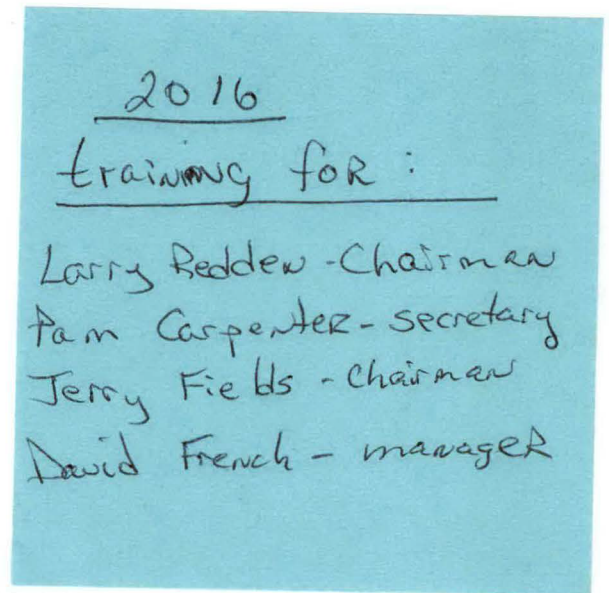 2016
training for :
Larry Redden - Chairman
Pam Carpenter - secretary
Jerry Fields - Chairman
David French - manager